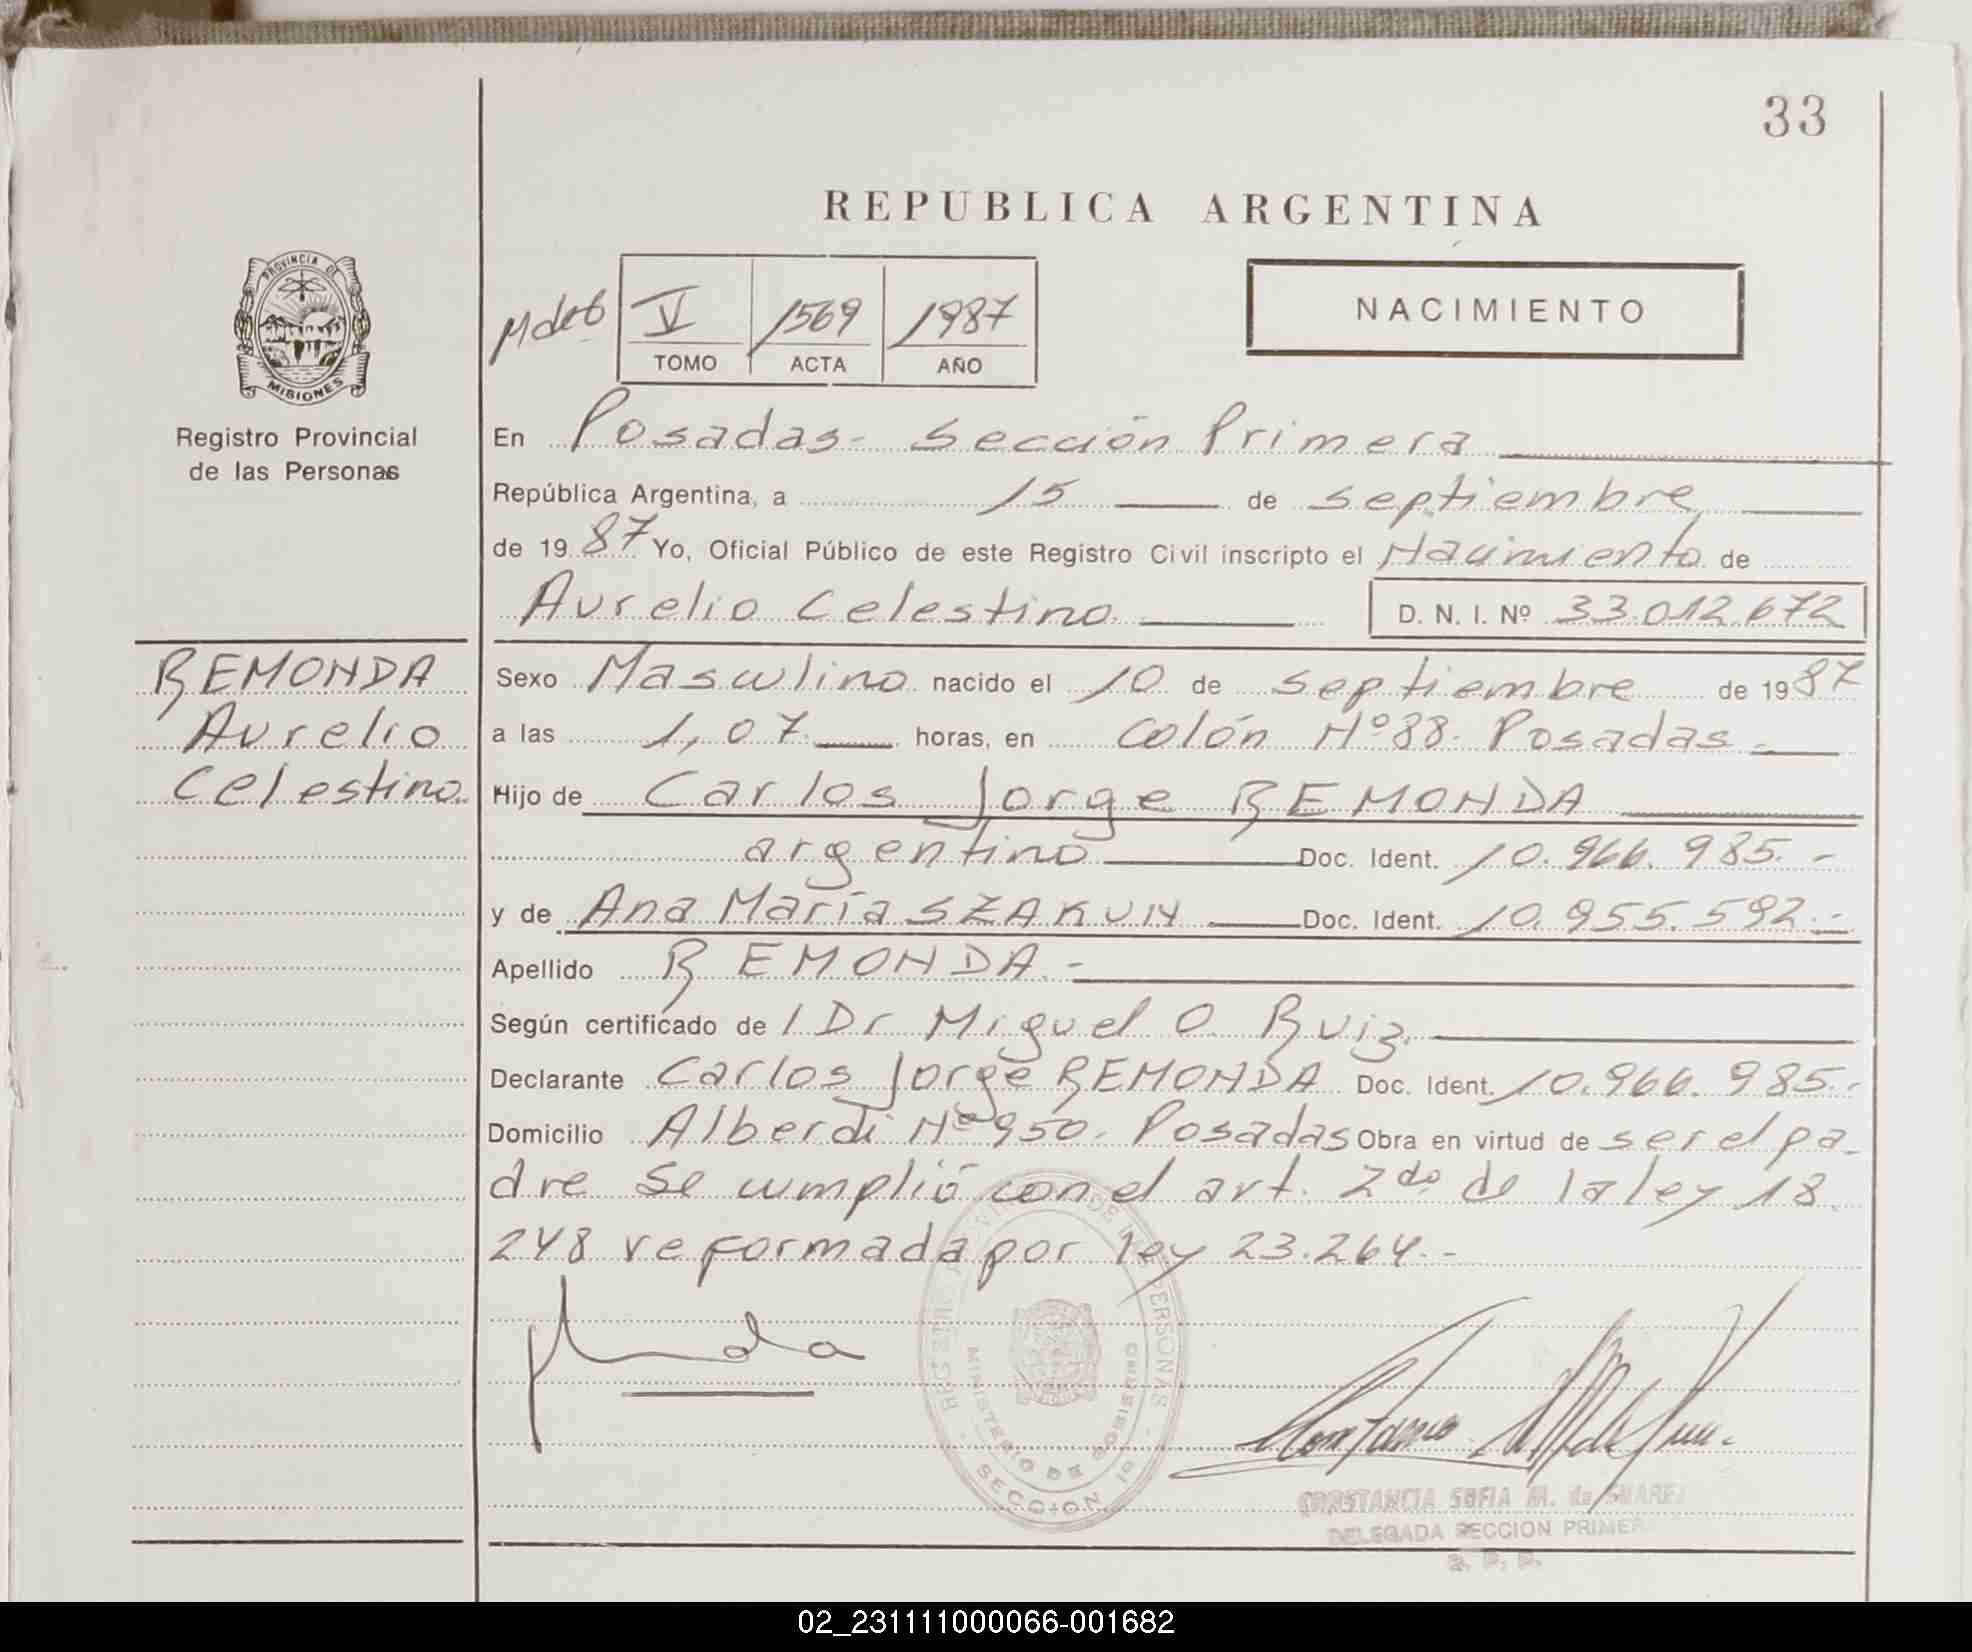 33
REPUBLICA ARGENTINA
PROVINCIA DE
MISIONES
Registro Provincial
de las Personas
V 1569 1987
TOMO ACTA AÑO
NACIMIENTO
En Posadas- Sección Primera
República Argentina, a 15 de septiembre
de 19 87 Yo, Oficial Público de este Registro Civil inscripto el Nacimiento de
Aurelio Celestino D. N. I. Nº 33.012.672
REMONDA
Aurelio
Celestino.
Sexo Masculino nacido el 10 de septiembre de 19 87
a las 1,07 horas, en Colón Nº 88. Posadas.-
Hijo de Carlos Jorge REMONDA
argentino Doc. Ident. 10.966.985.-
y de Ana María SZAKUN Doc. Ident. 10.955.592.-
Apellido REMONDA.-
Según certificado de l Dr Miguel O. Ruiz.
Declarante Carlos Jorge REMONDA Doc. Ident. 10.966.985.-
Domicilio Alberdi Nº 950. Posadas Obra en virtud de ser el pa-
dre Se cumplió con el art. 2do de la ley 18.
248 reformada por ley 23.264.-
MINISTERIO DE GOBIERNO
SECCION 1a
CONSTANCIA SOFIA M. de SUAREZ
DELEGADA SECCION PRIMERA
02_231111000066-001682